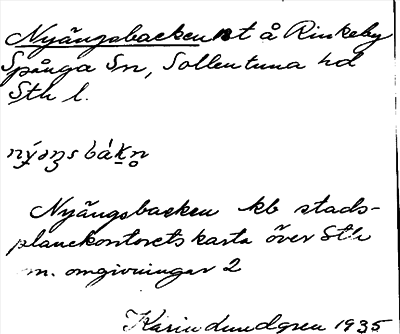 Nyängsbacken st å Rinkeby
Spånga Sn, Sollentuna hd
Sth l.
Nyängsbacken kb stads-
planekontorets karta över Sth
m. omgivningar 2
Karin Lundgren 1935